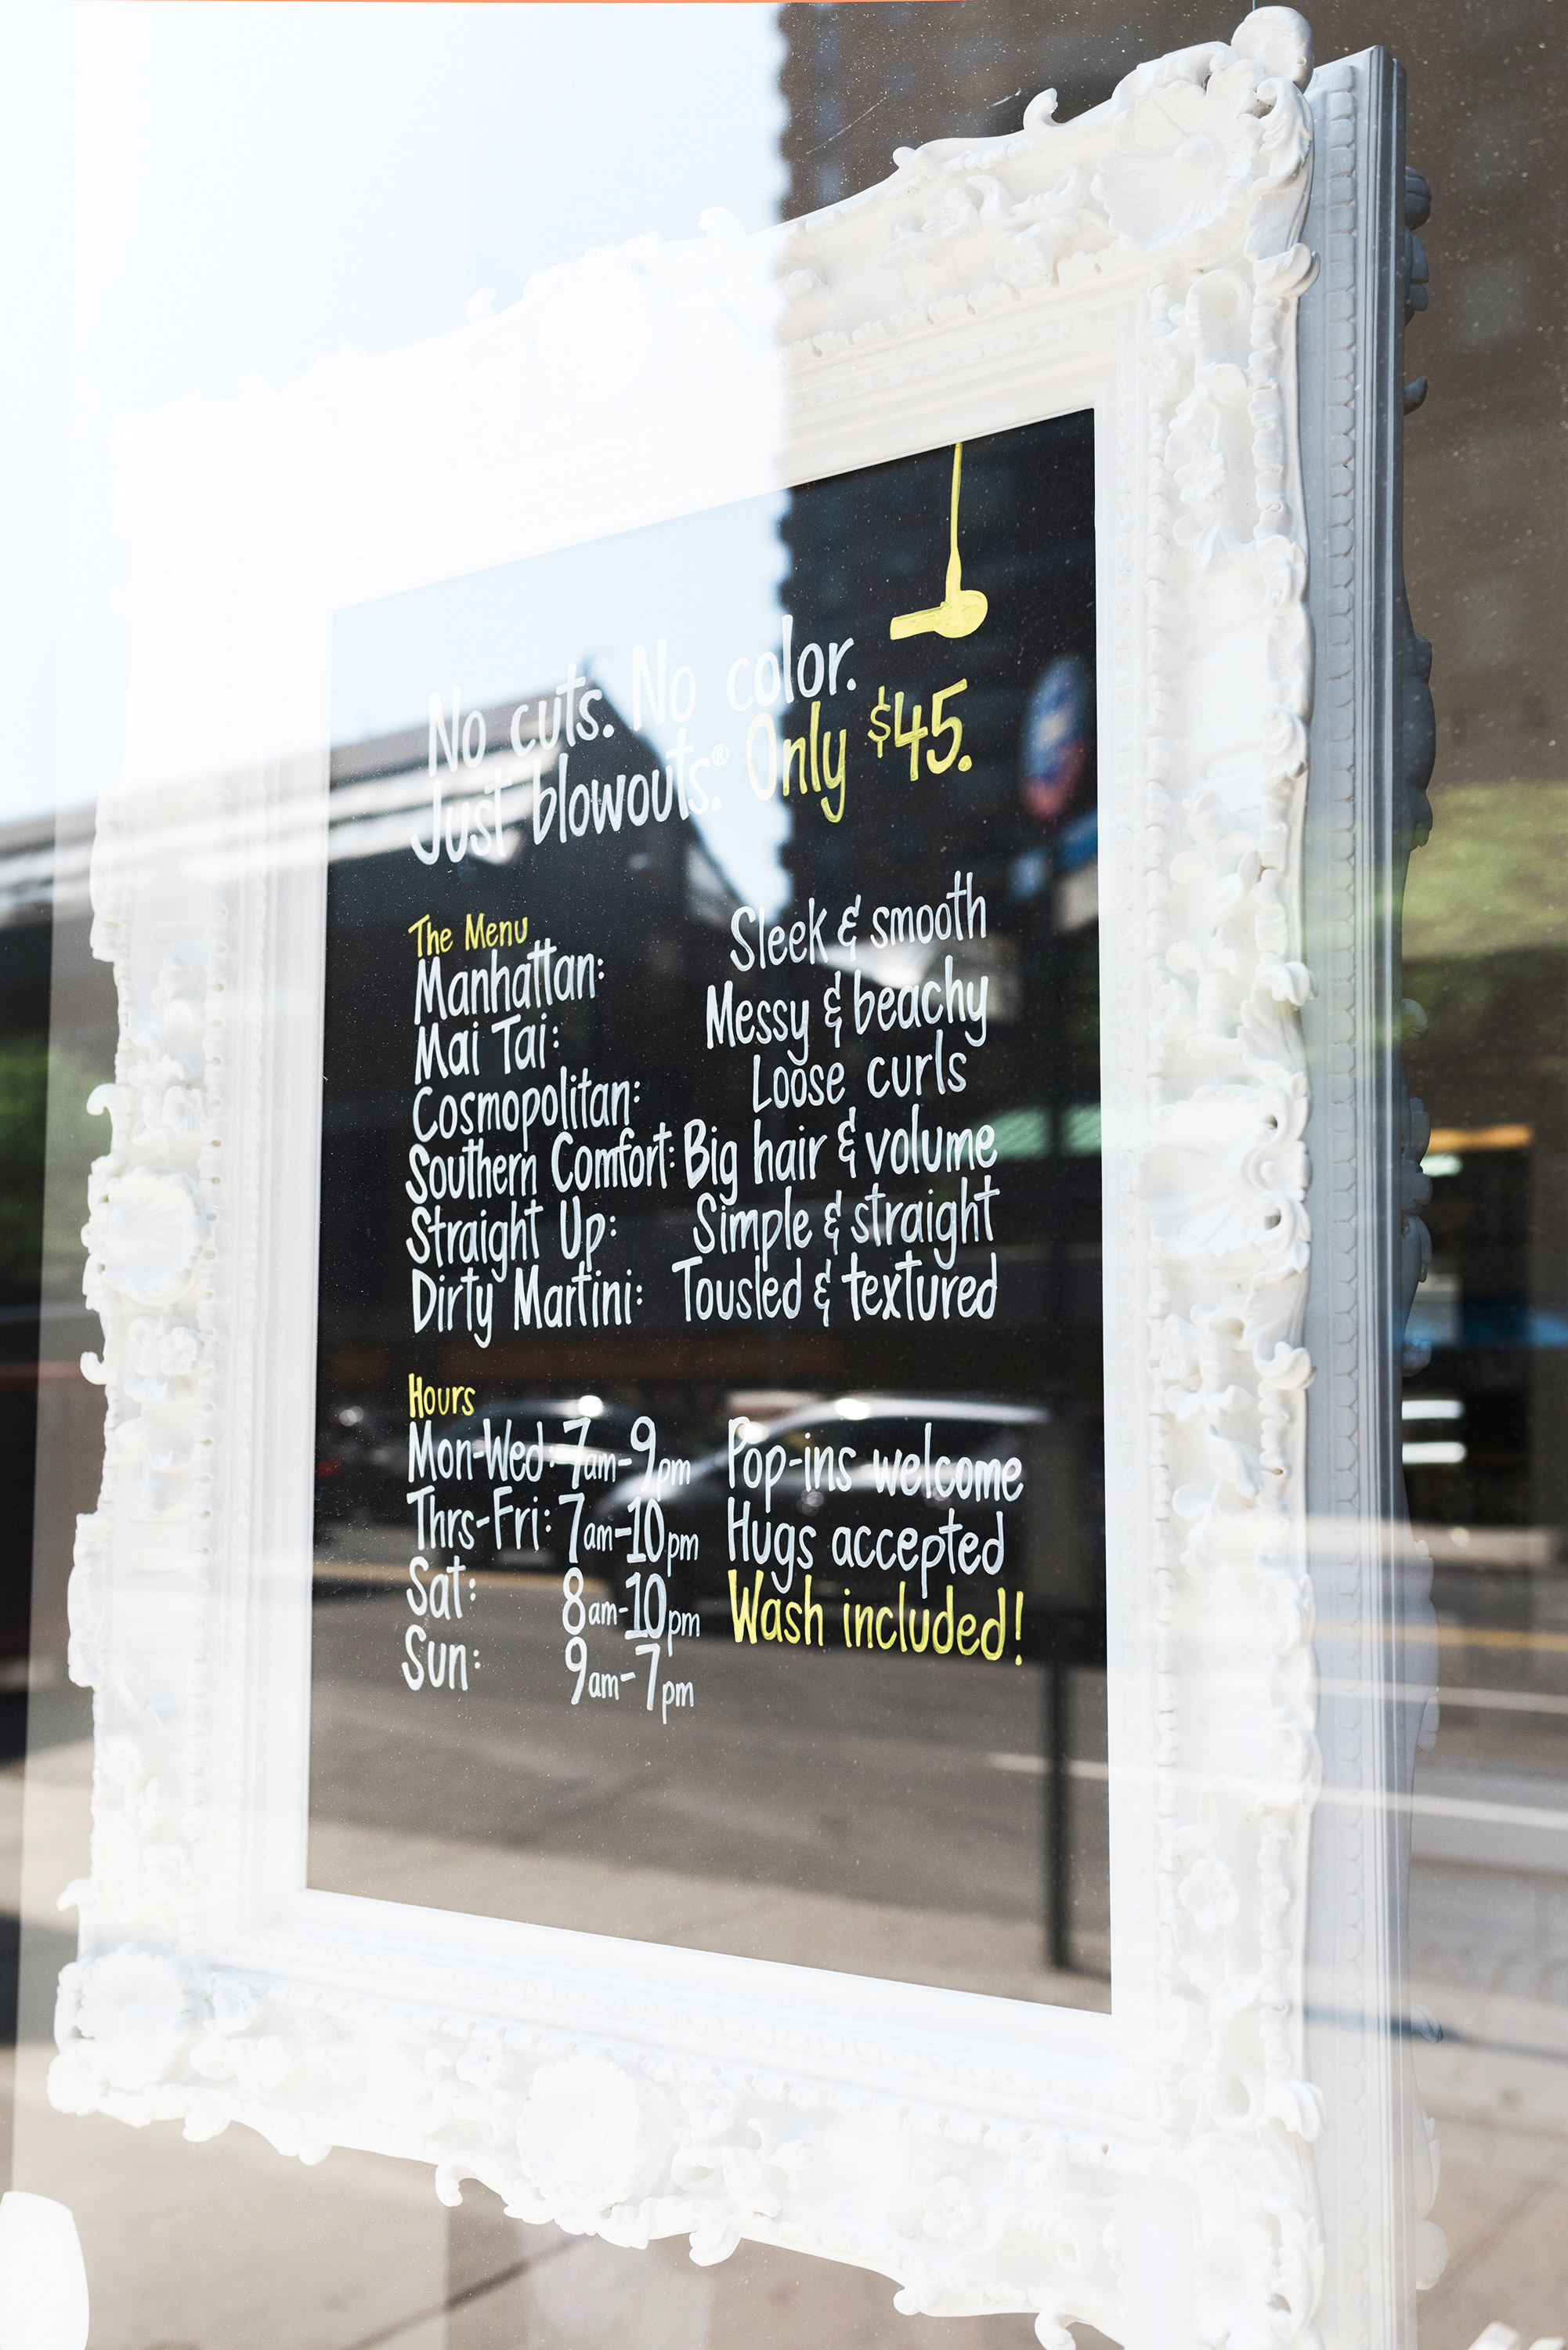 No cuts. No color.
Just blowouts.® Only $45.
The Menu
Manhattan: Sleek & smooth
Mai Tai: Messy & beachy
Cosmopolitan: Loose curls
Southern Comfort: Big hair & volume
Straight Up: Simple & straight
Dirty Martini: Tousled & textured
Hours
Mon-Wed: 7am-9pm
Thrs-Fri: 7am-10pm
Sat: 8am-10pm
Sun: 9am-7pm
Pop-ins welcome
Hugs accepted
Wash included!